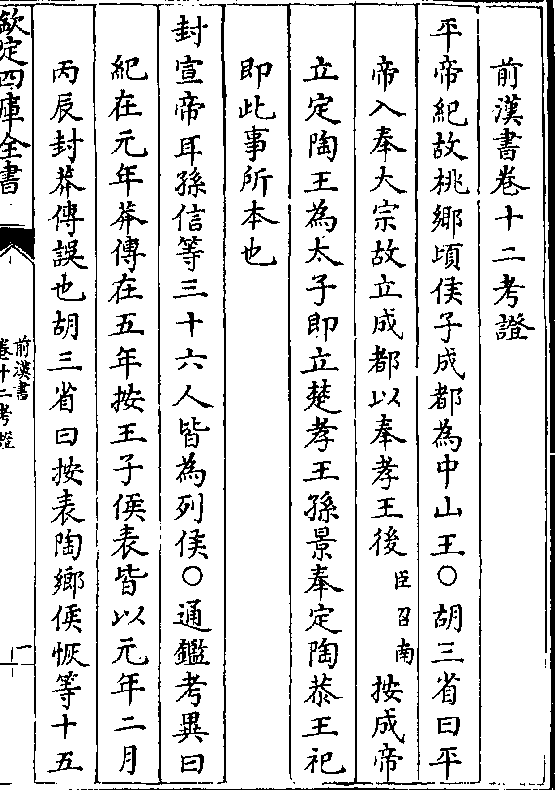 前漢書卷十二考證
平帝紀故桃鄉頃侯子成都為中山王○胡三省曰平
帝入奉大宗故立成都以奉孝王後臣召南按成帝
立定陶王為太子即立楚孝王孫景奉定陶恭王祀
即此事所本也
封宣帝耳孫信等三十六人皆為列侯○通鑑考異曰
紀在元年莽傳在五年按王子侯表皆以元年二月
丙辰封莽傳誤也胡三省曰按表陶鄉侯恢等十五
欽定四庫全書
前漢書
卷十二考證
一